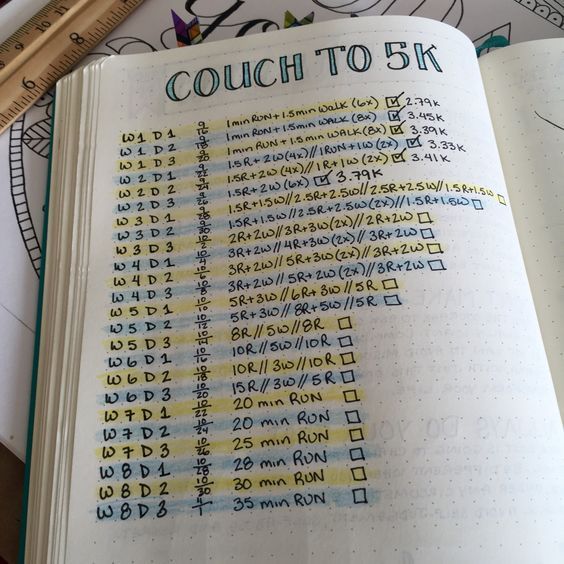 COUCH TO 5K
W1 D1 9/16 1min RUN + 1.5min WALK (6x) ☑ 2.79K
W1 D2 9/18 1min RUN + 1.5min WALK (8x) ☑ 3.45K
W1 D3 9/20 1min RUN + 1.5min WALK (8x) ☑ 3.39K
W2 D1 9/22 1.5R+2W(4x)//1RUN+1W(2x) ☑ 3.33K
W2 D2 9/24 1.5R+2W(4x)//1R+1W(2x) ☑ 3.41K
W2 D3 9/26 1.5R+2W(6x) ☑ 3.79K
W3 D1 9/28 1.5R+1.5W//2.5R+2.5W//2.5R+2.5W//1.5R+1.5W ☐
W3 D2 9/30 1.5R+1.5W//2.5R+2.5W(2x)//1.5R+1.5W ☐
W3 D3 10/2 2R+2W//3R+3W(2x)//2R+2W ☐
W4 D1 10/4 3R+2W//4R+3W(2x)//3R+2W ☐
W4 D2 10/6 3R+2W//5R+3W(2x)//3R+2W ☐
W4 D3 10/8 3R+2W//5R+2W(2x)//3R+2W ☐
W5 D1 10/10 5R+3W//6R+3W//5R ☐
W5 D2 10/12 5R+3W//8R+5W//5R ☐
W5 D3 10/14 8R//5W//8R ☐
W6 D1 10/16 10R//5W//10R ☐
W6 D2 10/18 10R//3W//10R ☐
W6 D3 10/20 15R//3W//5R ☐
W7 D1 10/22 20 min RUN ☐
W7 D2 10/24 20 min RUN ☐
W7 D3 10/26 25 min RUN ☐
W8 D1 10/28 28 min RUN ☐
W8 D2 10/30 30 min RUN ☐
W8 D3 11/1 35 min RUN ☐